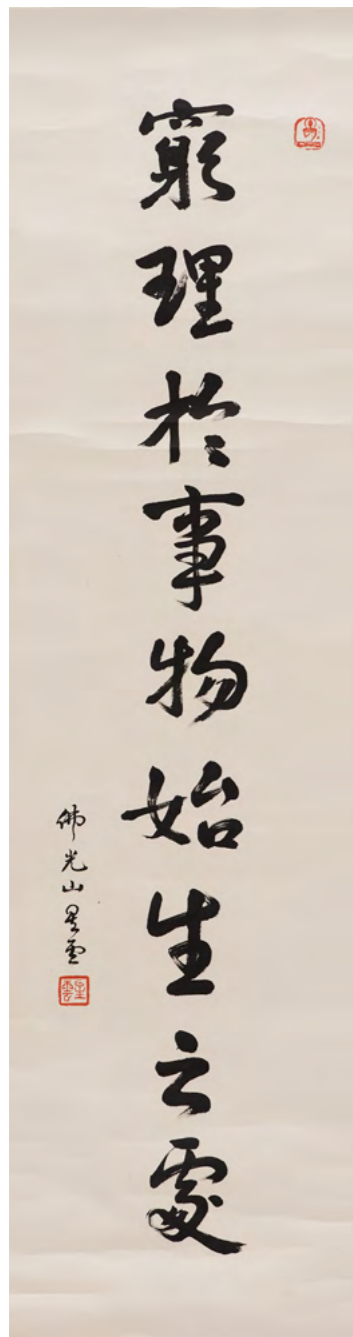 窮理於事物始生之處
佛光山星雲
星雲